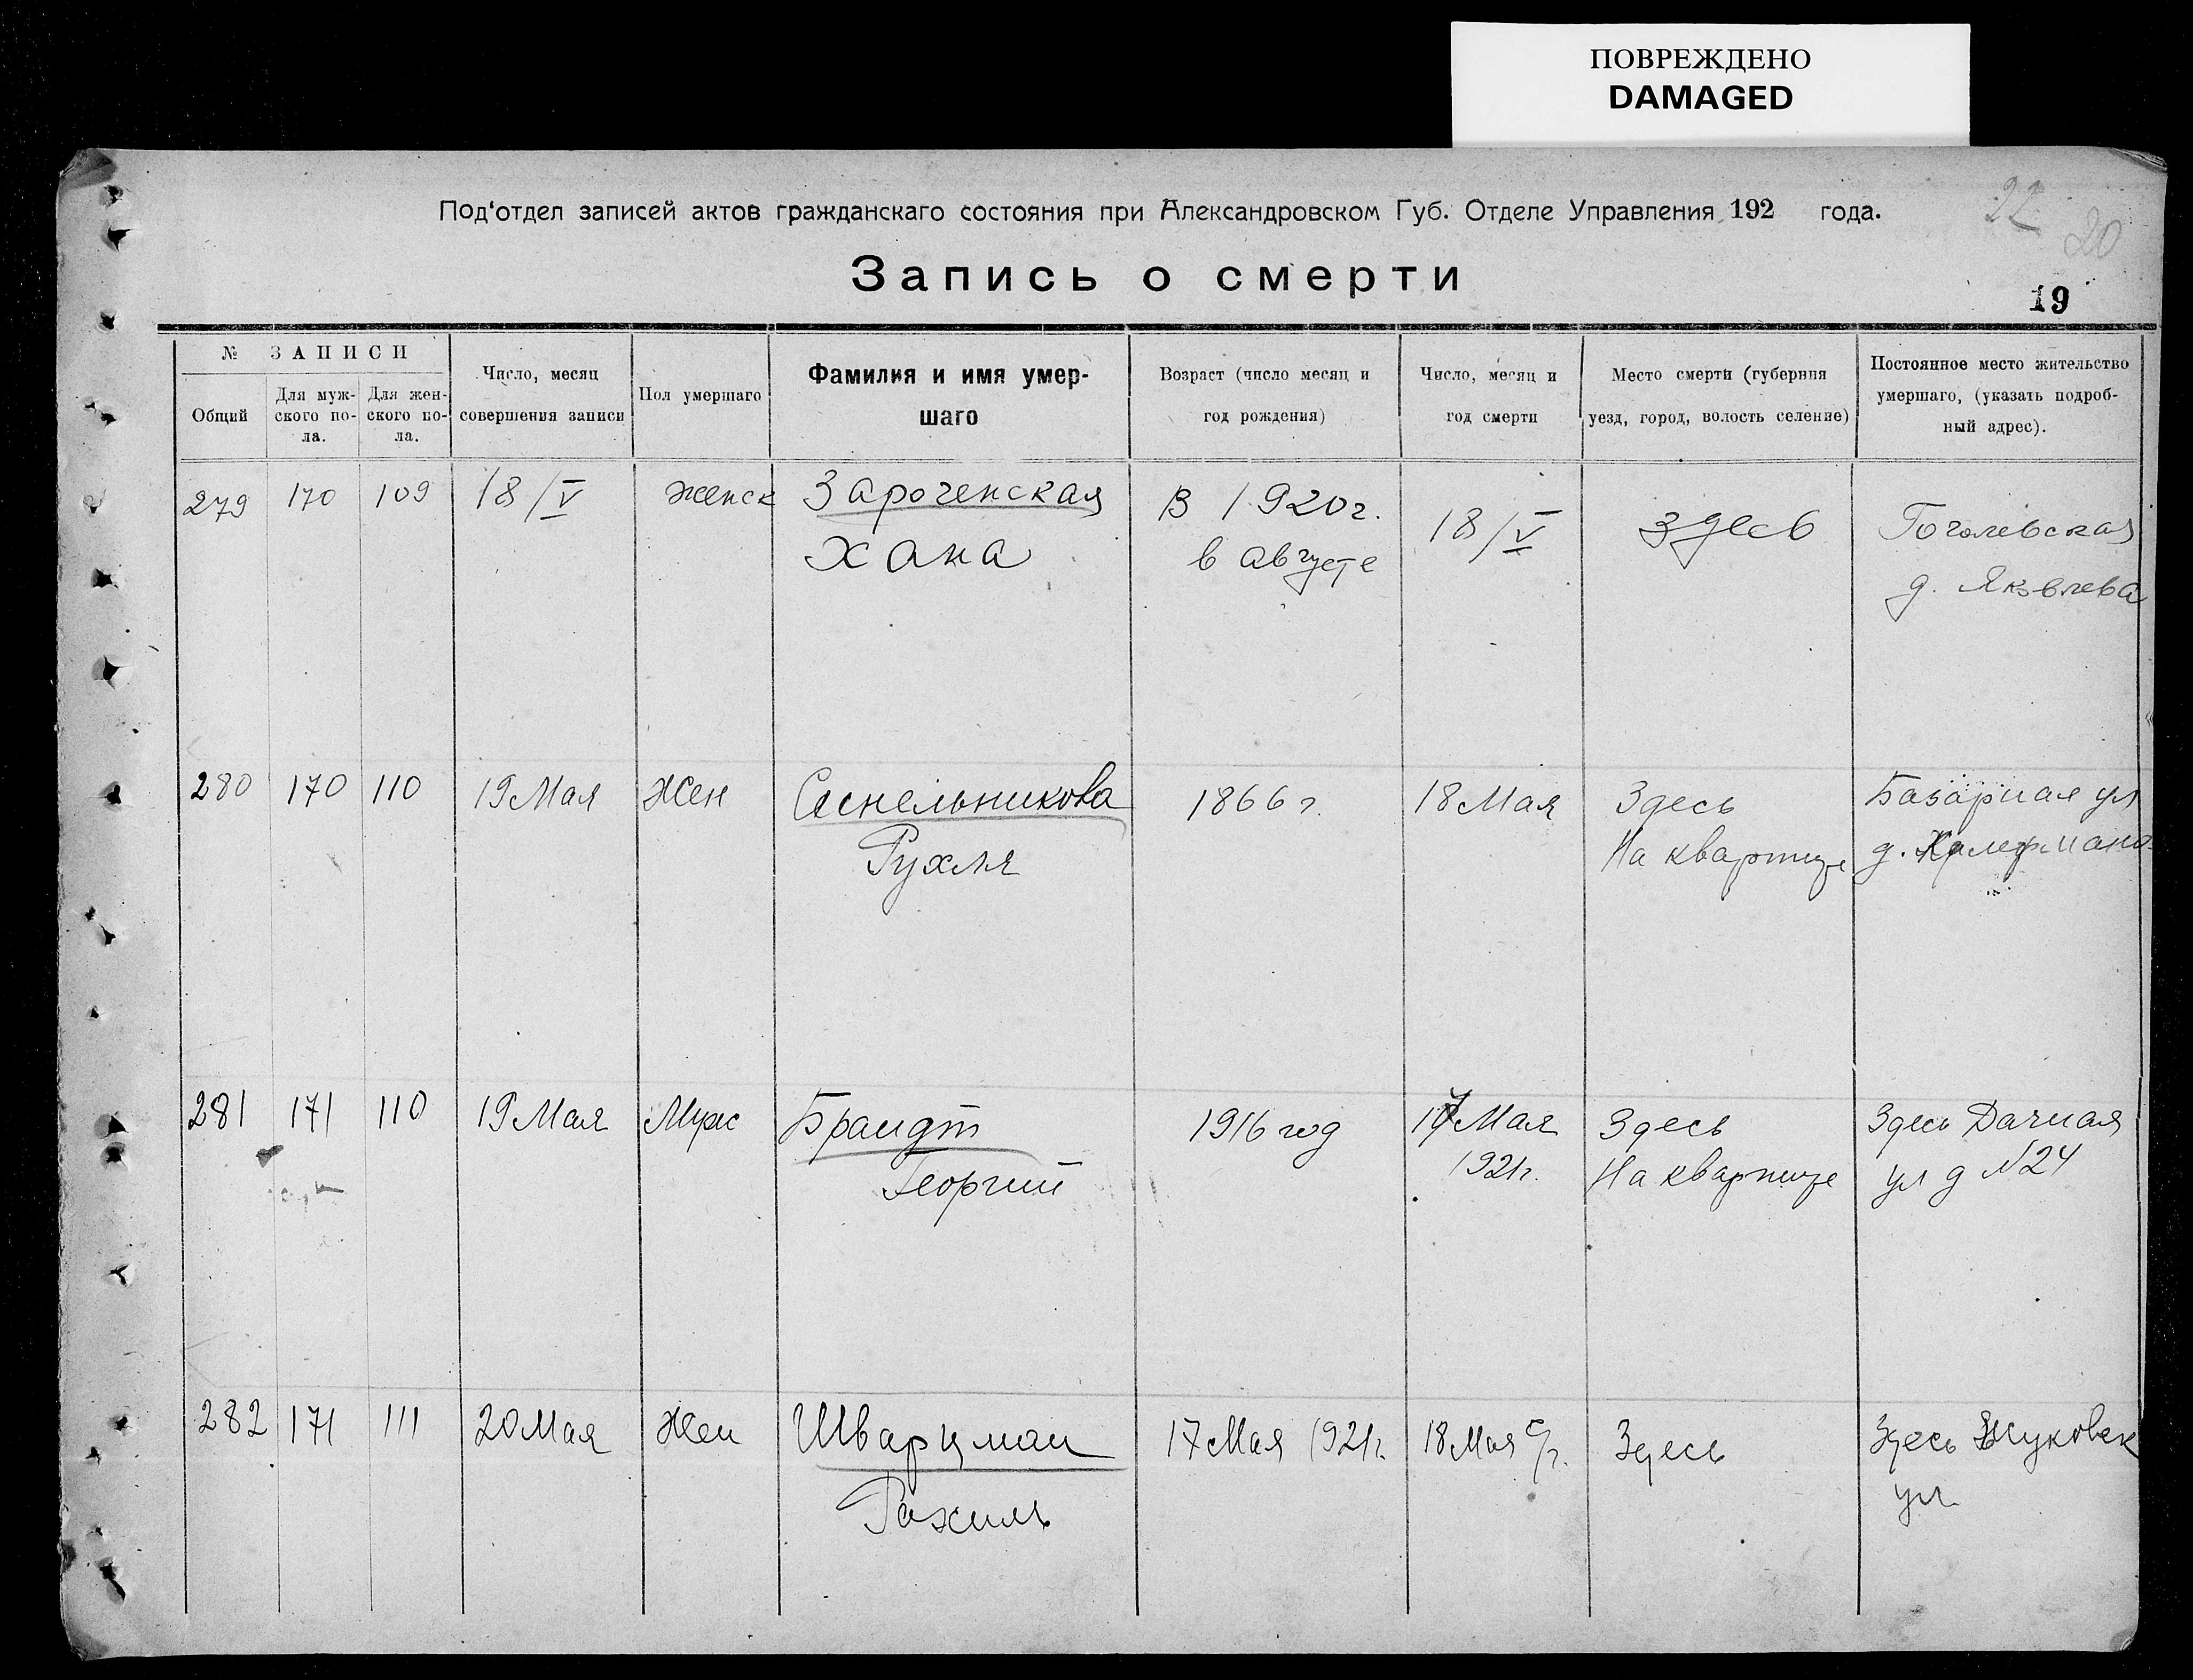 ПОВРЕЖДЕНО
DAMAGED
22
20
Под'отдел записей актов гражданскаго состояния при Александровском Губ. Отделе Управления 192 года.
Запись о смерти
19
№ ЗАПИСИ
Общий
Для муж-
ского по-
ла.
Для жен-
ского по-
ла.
Число, месяц
совершения записи
Пол умершаго
Фамилия и имя умер-
шаго
Возраст (число месяц и
год рождения)
Число, месяц и
год смерти
Место смерти (губерния
уезд, город, волость селение)
Постоянное место жительство
умершаго, (указать подроб-
ный адрес).
279 170 109 18/V женск Зароченская В 1920г. 18/V здесь Гоголевская
Хана в августе д. Яковлева
280 170 110 19 Мая Жен Синельникова 1866 г. 18 Мая Здесь Базарная ул
Рухля На квартире д.
281 171 110 19 Мая Муж Брандт 1916 год 17 Мая Здесь Здесь Дачная
Георгий 1921г. На квартире ул д №24
282 171 111 20 Мая Жен Шварцман 17 Мая 1921г. 18 Мая с/г. Здесь Здесь Жуковск
Рахиль ул.